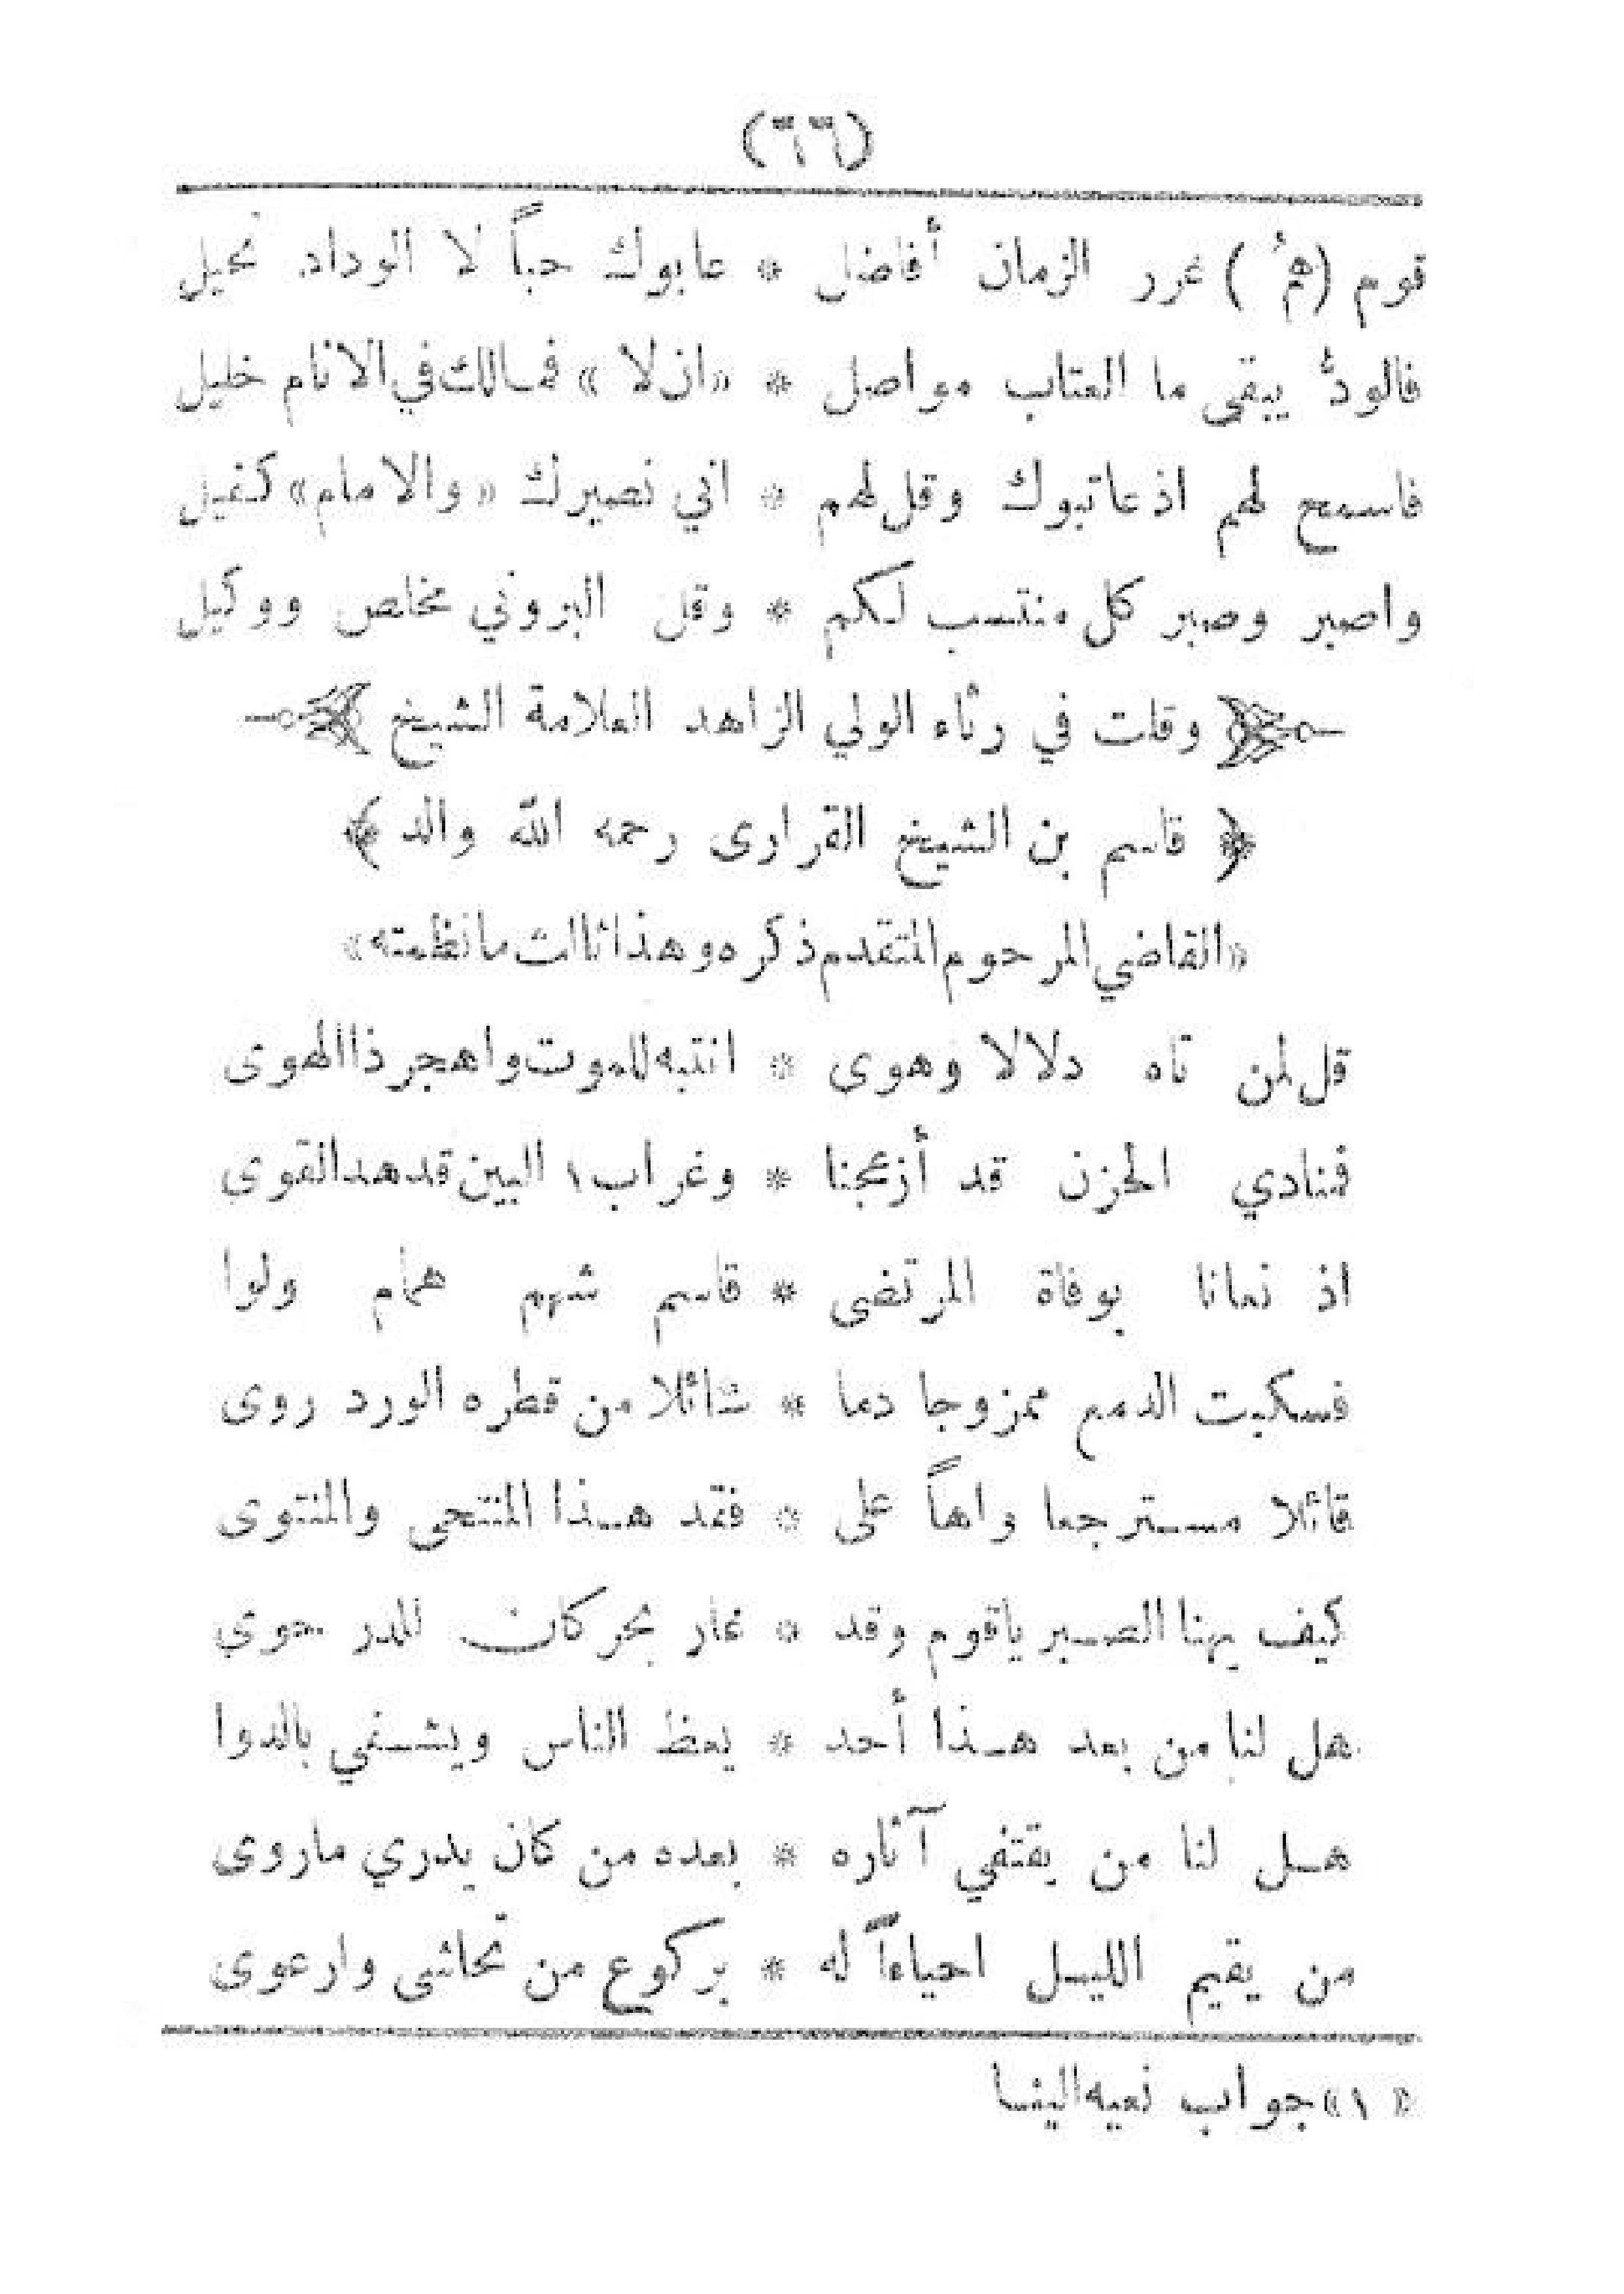 (٦٦)
قوم (همُ) غرر الزمان أفاضل * عابوك حباً لا الوداد تحيل
فالودُّ يبقى ما العتاب مواصل * «ان لا» فمالك في الانام خليل
فاسمح لهم اذ عاتبوك وقل لهم * اني نصيرك «والامام» كفيل
واصبر وصبر كل منتسب لكم * وقل البروني مخلص ووكيل
﴿ وقلت في رثاء الولي الزاهد العلامة الشيخ ﴾
﴿ قاسم بن الشيخ القرارى رحمه الله والد ﴾
«القاضي المرحوم المتقدم ذكره وهذا ثالث ما نظمته»
قل لمن تاه دلالا وهوى * انتبه للموت واهجر ذا الهوى
فنادي الحزن قد أزعجنا * وغراب١ البين قد هد القوى
اذ نعانا بوفاة المرتضى * قاسم شهم همام ولوا
فسكبت الدمع ممزوجا دما * سائلا من قطره الورد روى
قائلا مسترجعا واهاً على * فقد هذا المنتحى والمنتوى
كيف يهنا الصبر ياقوم وقد * غار بحر كان للدر حوى
هل لنا من بعد هذا أحد * يعظ الناس ويشفي بالدوا
هل لنا من يقتفي آثاره * بعده من كان يدري ماروى
من يقيم الليل احياءاً له * بركوع من تحاشى وارعوى
«١» جواب نعيه الينا